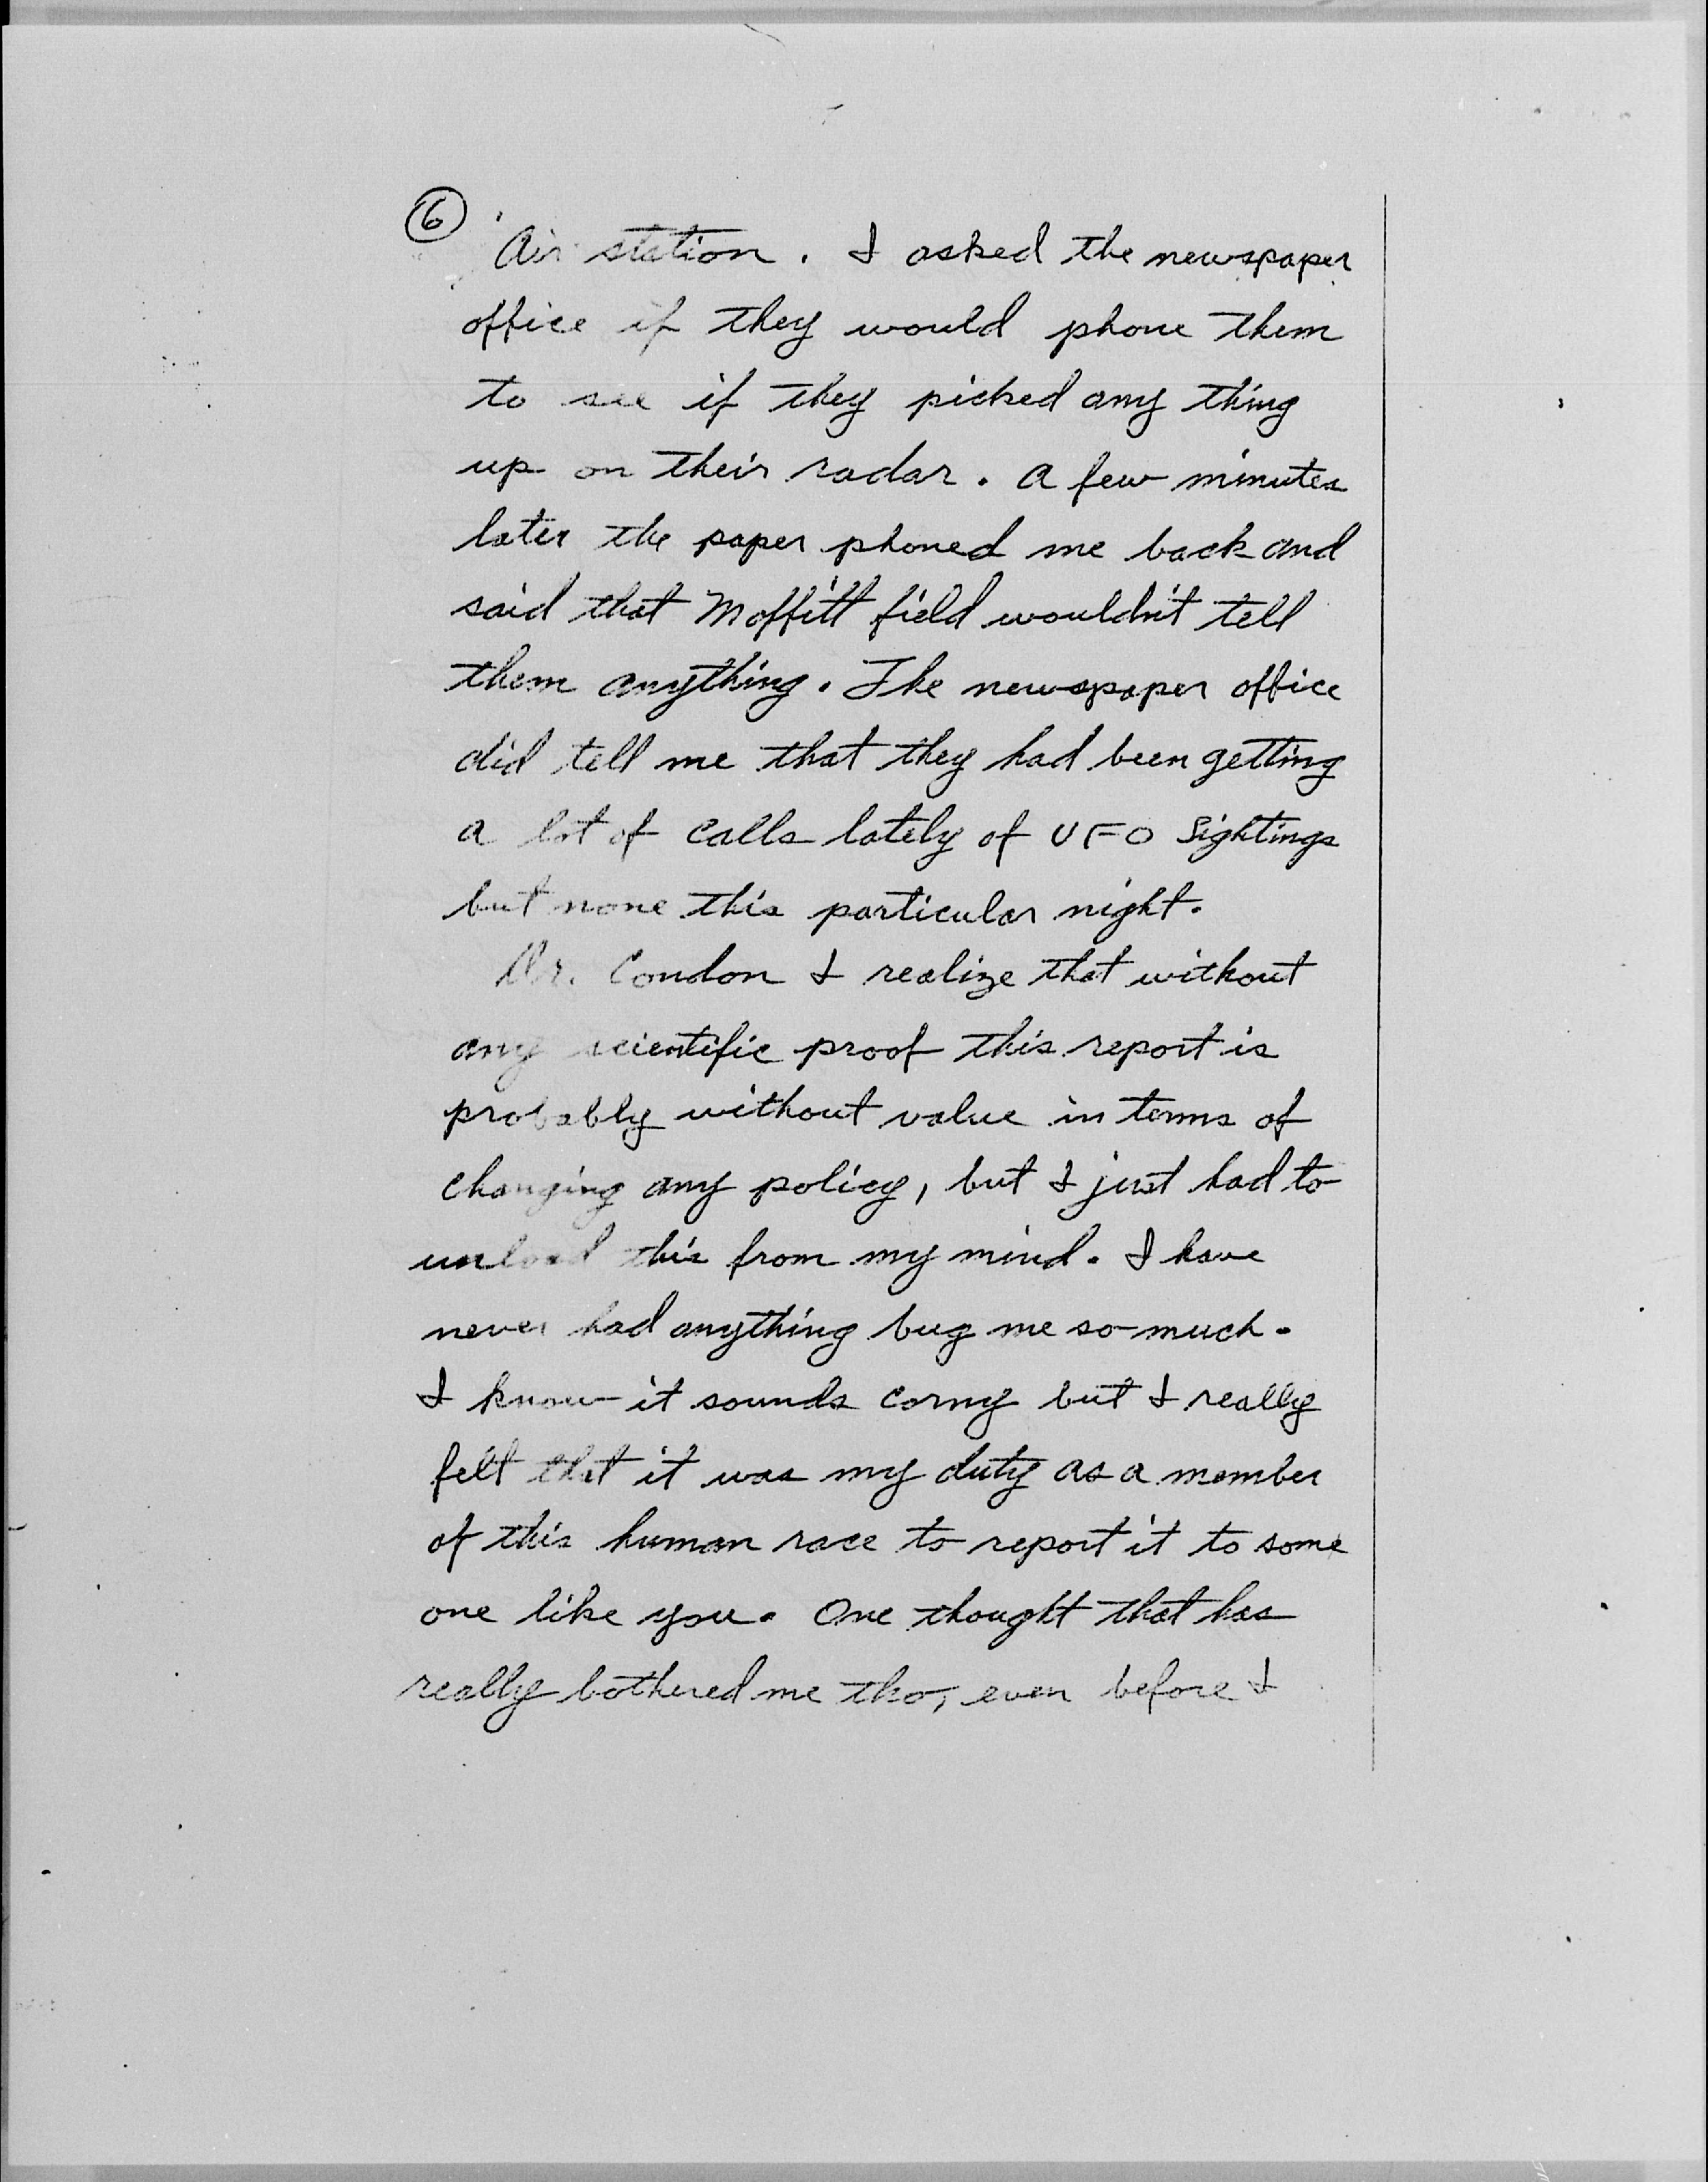 6
Air station. I asked the newspaper
office if they would phone them
to see if they picked any thing
up on their radar. A few minutes
later the paper phoned me back and
said that Moffitt field wouldn't tell
them anything. The newspaper office
did tell me that they had been getting
a lot of calls lately of UFO Sightings
but none this particular night.
Dr. Condon I realize that without
any scientific proof this report is
probably without value in terms of
changing any policy, but I just had to
unload this from my mind. I have
never had anything bug me so much.
I know it sounds corny but I really
felt that it was my duty as a member
of this human race to report it to some
one like you. One thought that has
really bothered me tho, even before I